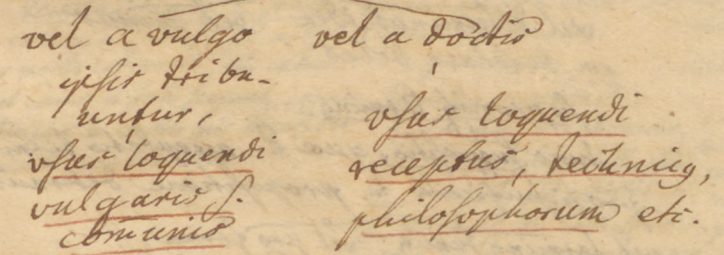 vel a vulgo
ipsis tribu-
untur,
vsus loquendi
vulgaris s.
comunis
vel a doctis
vsus loquendi
receptus, technicus,
philosophorum etc.